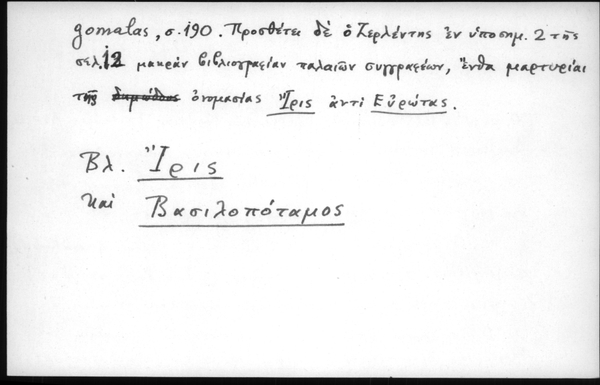 gomalas, σ. 190. Προσθέτει δὲ ὁ Ζερλέντης ἐν ὑποσημ. 2 τῆς
σελ. 12 μακρὰν βιβλιογραφίαν παλαιῶν συγγραφέων, ἔνθα μαρτυρίαι
τῆς δημώδους ὀνομασίας Ἴρις ἀντὶ Εὐρώτας.
Βλ. Ἴρις
καὶ Βασιλοπόταμος